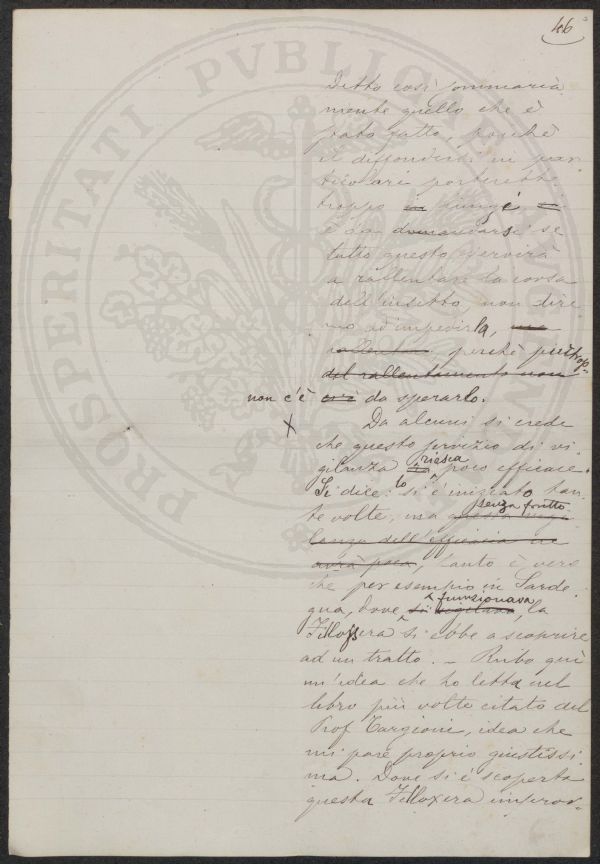 46
Detto così sommaria
mente quello che è
stato fatto, poichè
il diffondersi in par
ticolari porterebbe
troppo in lungi,
è da domandarsi se
tutto questo servirà
a rallentare la corsa
dell'insetto, non dire
mo ad impedirla,
rallentar perchè purtrop-
del rallentamento non
non c'è da sperarlo.
X Da alcuni si crede
che questo servizio di vi
gilanza riesca poco efficace.
Si dice: lo si è iniziato tan
te volte, ma senza frutto
questa vigi
lanza dell'efficacia ne
avrà poca, tanto è vero
che per esempio in Sarde
gna, dove si vigilava funzionava, la
Fillossera si ebbe a scoprire
ad un tratto. – Rubo quì
un'idea che ho letta nel
libro più volte citato del
Prof Targioni, idea che
mi pare proprio giustissi
ma. Dove si è scoperta
questa Filloxera improv-
PROSPERITATI PVBLICAE